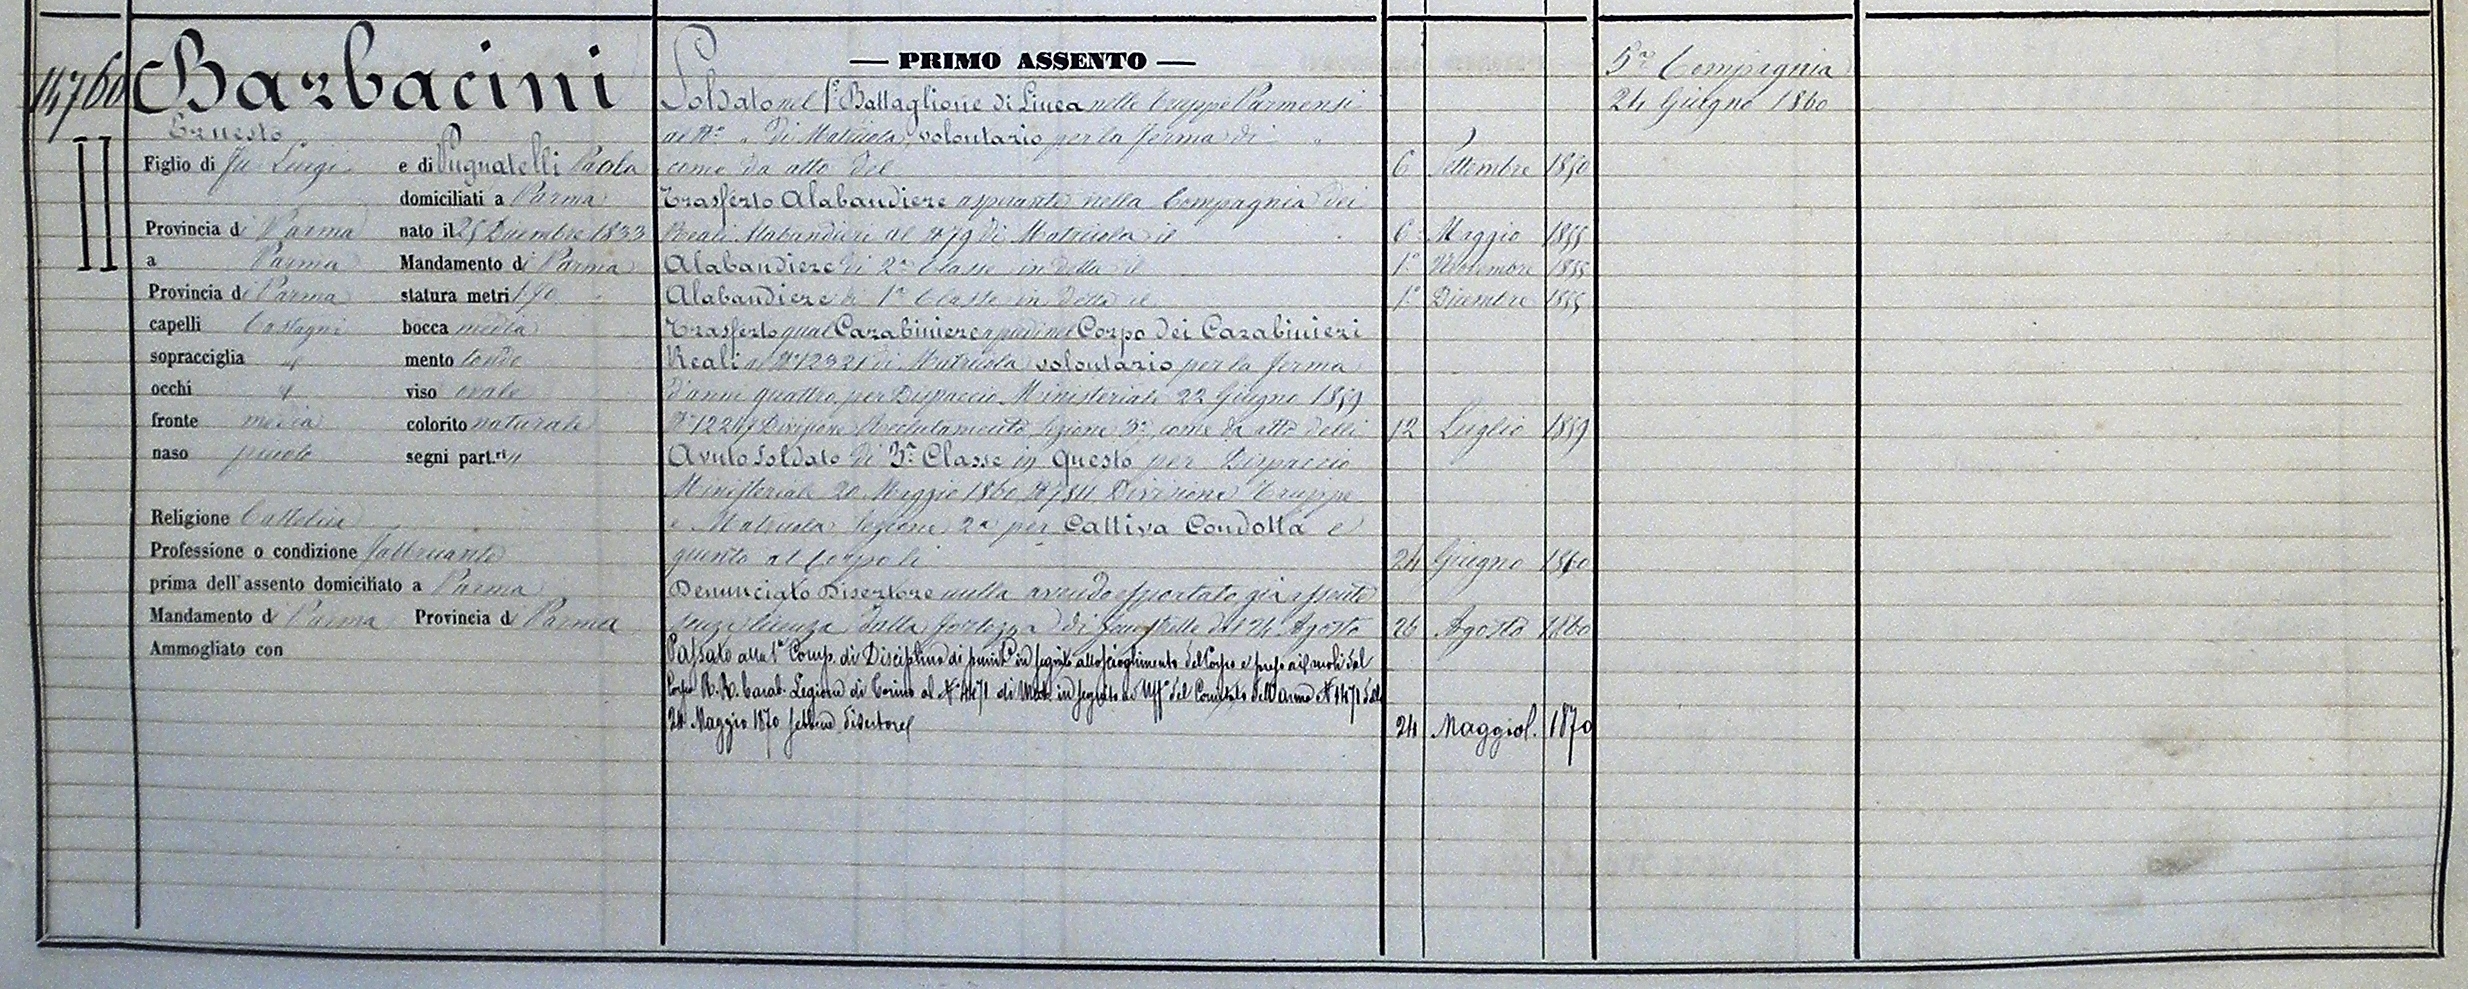 14760
Barbacini
Ernesto
II
Figlio di fu Luigi e di Pugnatelli Paola
domiciliati a Parma
Provincia di Parma nato il 25 Dicembre 1833
a Parma Mandamento di Parma
Provincia di Parma statura metri 1,70
capelli Castagni bocca media
sopracciglia " mento tondo
occhi " viso ovale
fronte media colorito naturale
naso piccolo segni part.ri "
Religione Cattolica
Professione o condizione fabbricante
prima dell'assento domiciliato a Parma
Mandamento di Parma Provincia di Parma
Ammogliato con
— PRIMO ASSENTO —
Soldato nel 1° Battaglione di Linea nelle Truppe Parmensi
al N° " di Matricola, volontario per la ferma di "
come da atto del 6 Settembre 1850
Trasferto Alabardiere aspirante nella Compagnia dei
Reali Alabardieri al N° 79 di Matricola il 6 Maggio 1855
Alabardiere di 2a Classe in detta il 1° Novembre 1855
Alabardiere di 1a Classe in detta il 1° Dicembre 1855
Trasferto qual Carabiniere a piedi nel Corpo dei Carabinieri
Reali al N° 12321 di Matricola, volontario per la ferma
d'anni quattro, per Dispaccio Ministeriale 22 Giugno 1859
Divisione Reclutamento, Sezione 3a, come da atto delli 12 Luglio 1859
Avuto Soldato di 3a Classe in questo per Dispaccio
Ministeriale 20 Maggio 1860, Divisione Truppe
e Matricola Sezione 2a per Cattiva Condotta e
giunto al Corpo li 24 Giugno 1860
Denunciato Disertore nulla avendo esportato già assente
senza licenza dalla fortezza di Fenestrelle dal 24 Agosto 26 Agosto 1860
Passato alla 1a Comp. di Disciplina di punit.e in seguito allo scioglimento del Corpo e preso ai ruoli dal
Corpo R. R. Carab. Legione di Torino al N° 4471 di Mat. in seguito ad Uff° del Comitato dell'Arma N° 1471 del
24 Maggio 1870 sebbene disertore 24 Maggio 1870
5a Compagnia
24 Giugno 1860